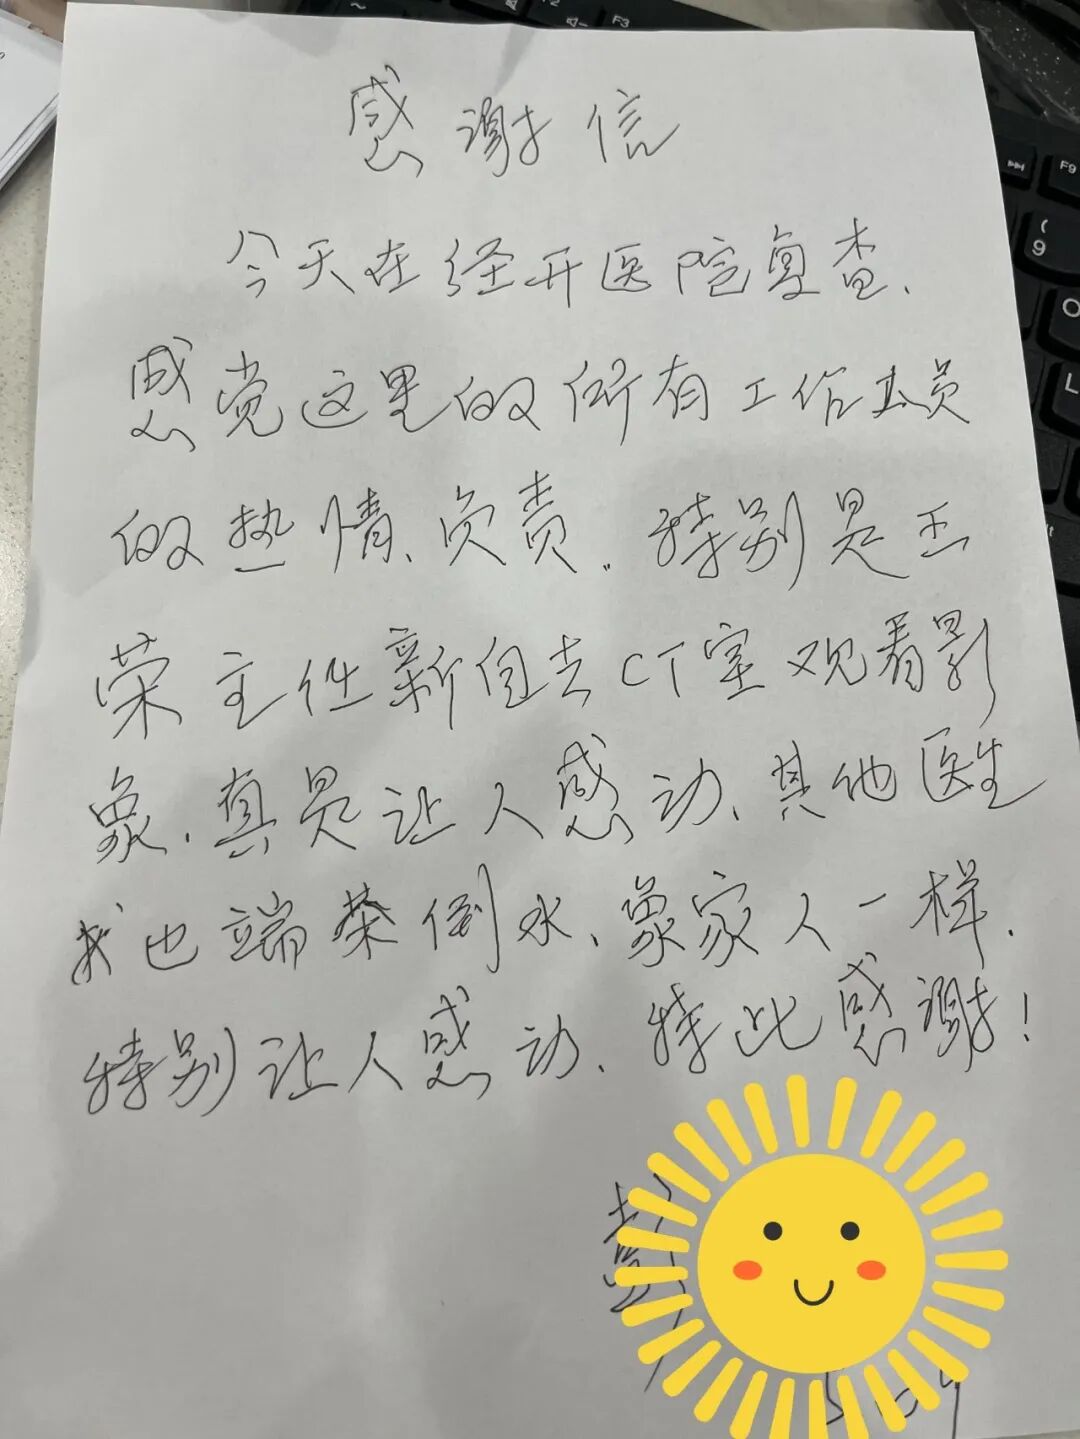 感谢信
今天在经开医院复查、
感觉这里的所有工作人员
的热情、负责。特别是王
荣主任亲自去CT室观看影
象、真是让人感动、其他医生
也端茶倒水、象家人一样.
特别让人感动、特此感谢!